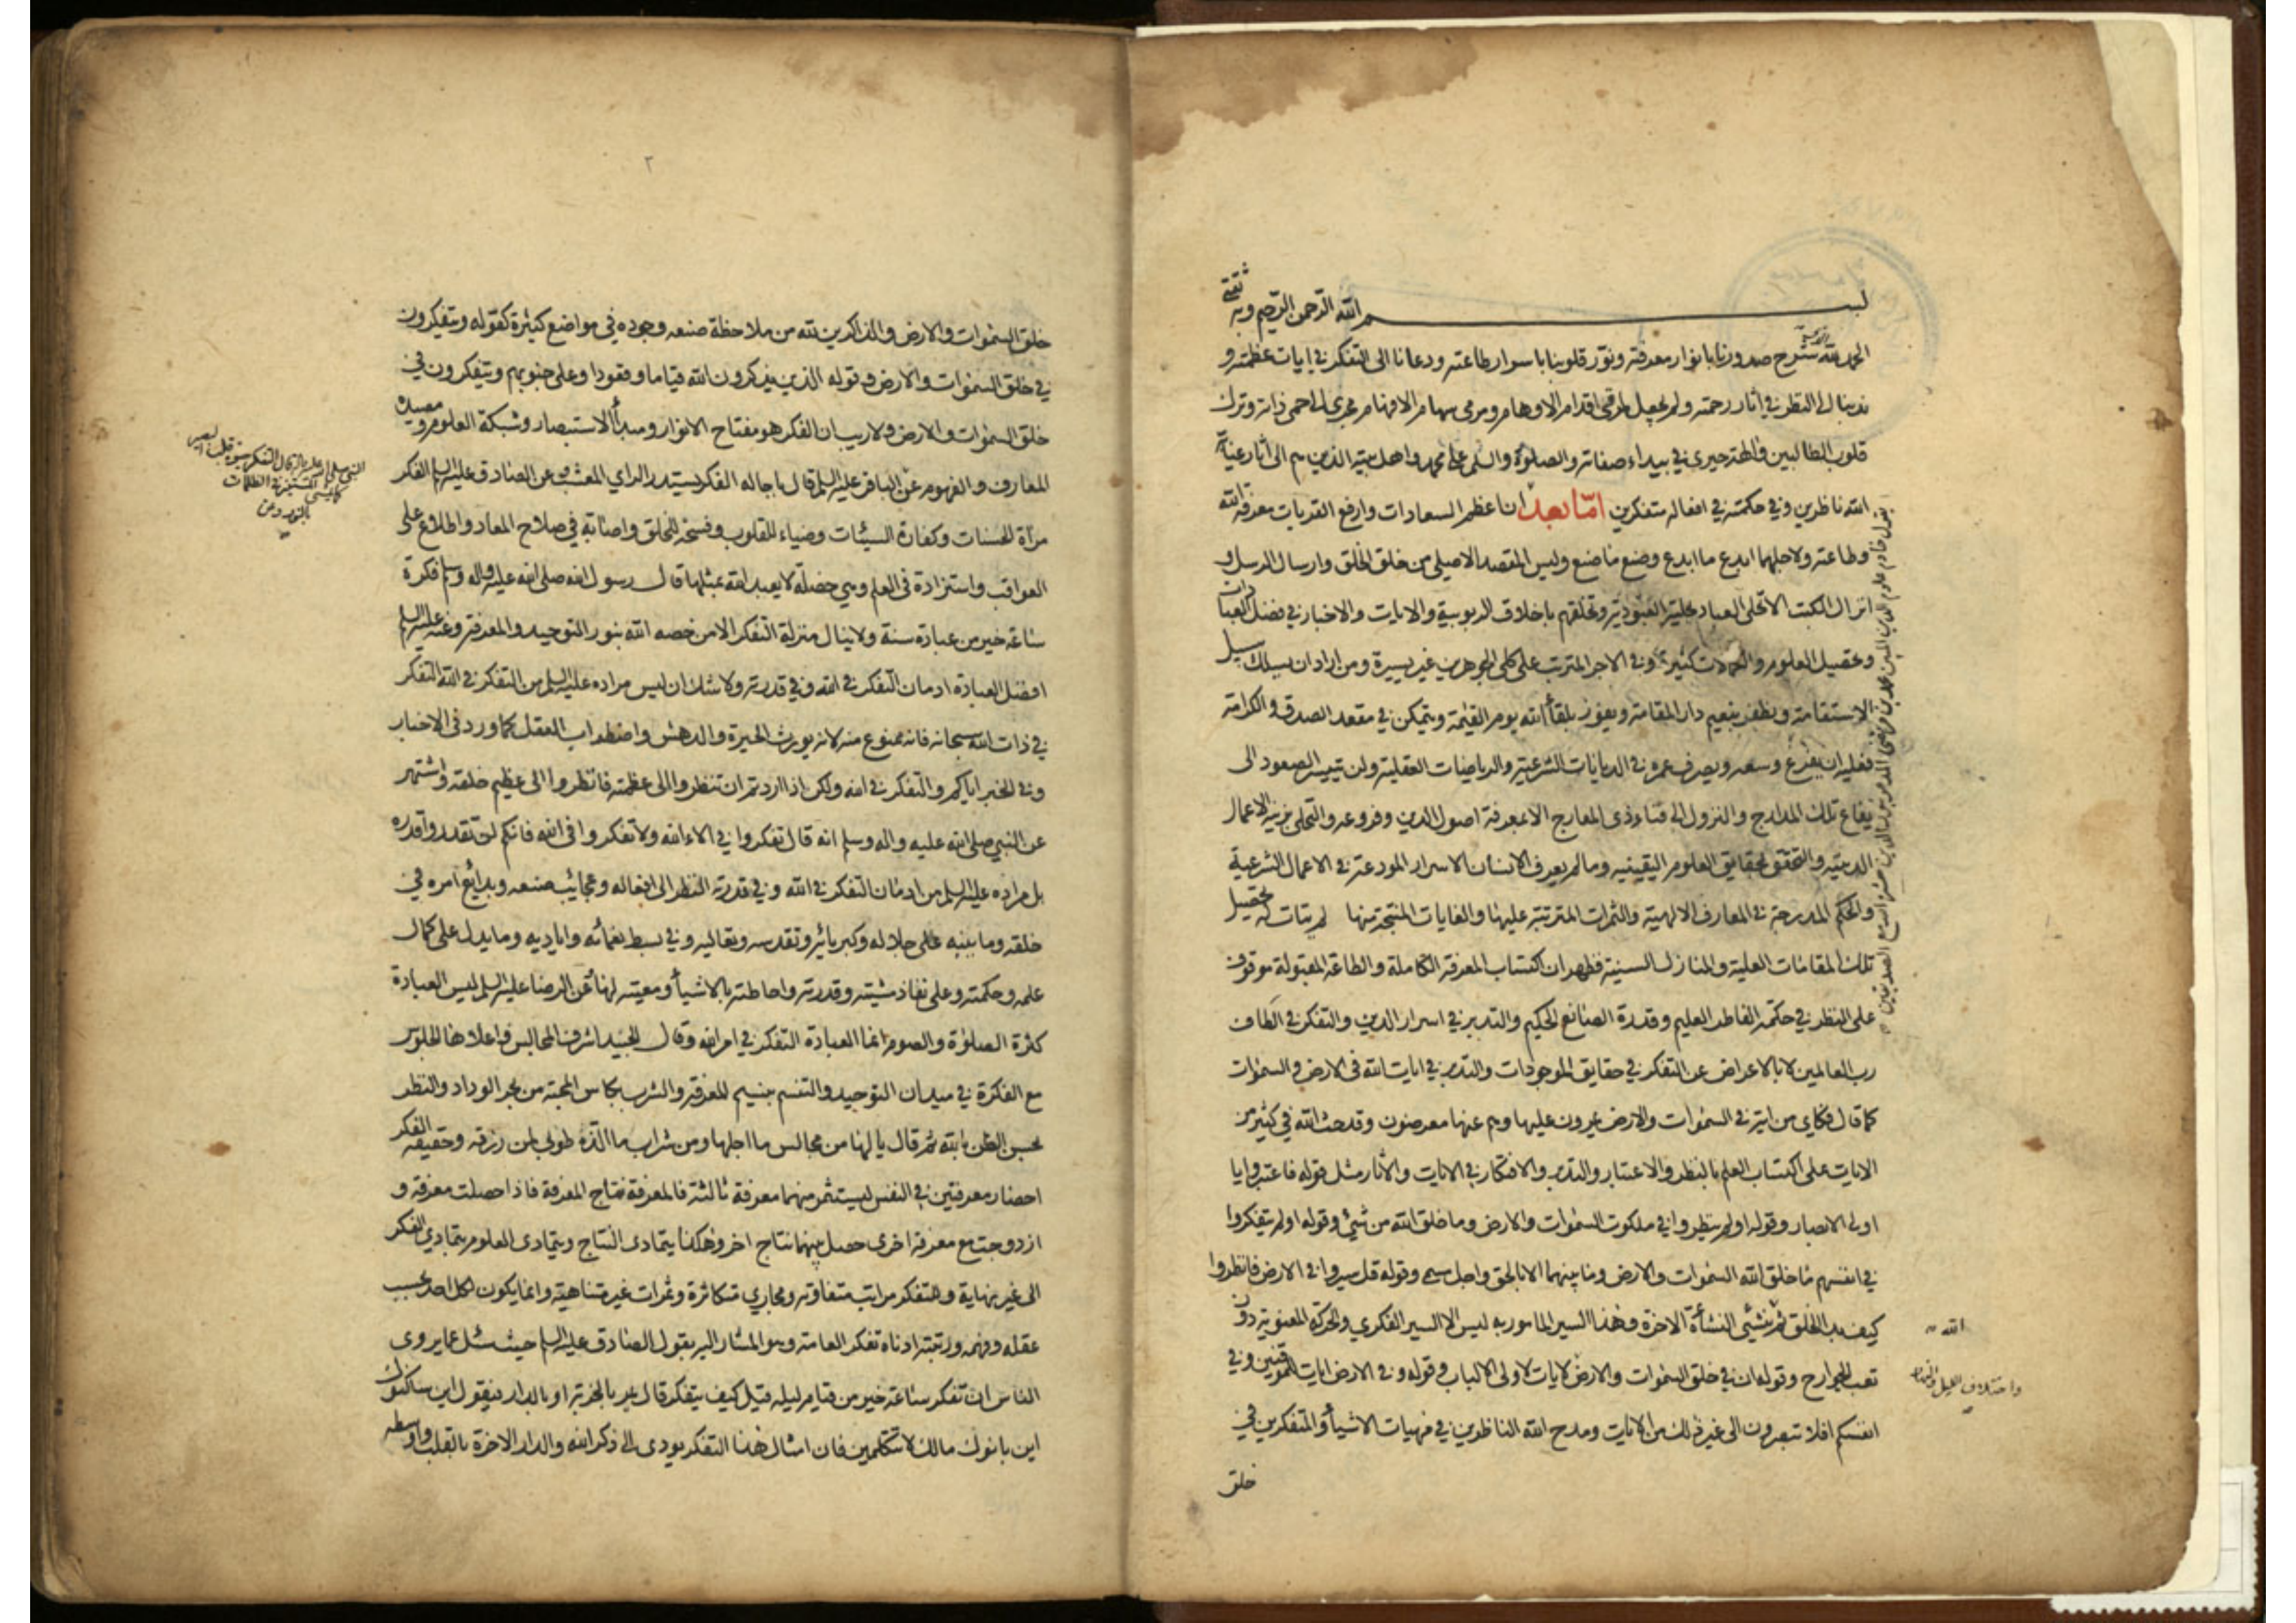 بسم الله الرحمن الرحيم وبه ثقتي
الحمد لله الذي شرح صدورنا بانوار معرفته ونور قلوبنا باسرار طاعته ودعانا الى التفكر في ايات عظمته و
ندبنا الى النظر في اثار رحمته ولم يجعل لمرقى اقدام الاوهام ومرمى سهام الافهام مجرى الى حمى ذاته وترك
قلوب الطالبين في بيداء صفاته والصلوة والسلم على محمد واهل بيته الذين هم الى اثار عناية
الله ناظرين وفي حكمته في افعاله متفكرين اما بعد فان اعظم السعادات وارفع القربات معرفة الله
وطاعته ولاجلهما ابدع ما ابدع وصنع ما صنع وليس المقصد الاصلي من خلق الخلق وارسال الرسل و
انزال الكتب الا تحلى العباد بحلية العبودية وتخلقهم باخلاق الربوبية والايات والاخبار في فضل العبادات
وتحصيل العلوم والكمالات كثيرة وفي الاجر المترتب على كلى الجوهرين غير يسيرة ومن اراد ان يسلك سبيل
الاستقامة ويظفر بنعيم دار المقامة ويفوز بلقاء الله يوم القيمة ويتمكن في مقعد الصدق والكرامة
فعليه ان يفرغ وسعه ويصرف عمره في الديانات الشرعية والرياضات العقلية ولن تيسر الصعود الى
يفاع تلك المدارج والنزول الى فناء ذى المعارج الا بمعرفة اصول الدين وفروعه والتحلى بزينة الاعمال
الدينيه والتحقق بحقايق العلوم اليقينيه وما لم يعرف الانسان الاسرار المودعة في الاعمال الشرعية
والحكم المندرجة في المعارف الالهية والثمرات المترتبة عليها والغايات المنتجة منها لم يتات له تحصيل
تلك المقامات العلية والمنازل السنية فظهر ان اكتساب المعرفة الكاملة والطاعة المقبولة موقوف
على النظر في حكمة الفاطر العليم وقدرة الصانع الحكيم والتدبر في اسرار الدين والتفكر في الطاف
رب العالمين لا بالاعراض عن التفكر في حقايق الموجودات والتدبر في ايات الله فى الارض والسموات
كما قال فكاى من اية في السموات والارض يمرون عليها وهم عنها معرضون وقد حث الله في كثير من
الايات على اكتساب العلم بالنظر والاعتبار والتدبر والافتكار في الايات والاثار مثل قوله فاعتبروا يا
اولى الابصار وقوله اولم ينظروا في ملكوت السموات والارض وما خلق الله من شئ وقوله اولم يتفكروا
في انفسهم ما خلق الله السموات والارض وما بينهما الا بالحق واجل مسمى وقوله قل سيروا في الارض فانظروا
كيف بدا الخلق ثم ينشئ النشأة الاخرة وهذا السير المامور به ليس الا السير الفكري والحركة المعنوية دون
تعب الجوارح وقوله ان في خلق السموات والارض لايات لاولى الالباب وقوله وفى الارض ايات للموقنين وفي
انفسكم افلا تبصرون الى غير ذلك من الايات ومدح الله الناظرين في مهيات الاشياء والمتفكرين في
خلق
الله
واختلاف الليل والنهار
يقول خادم علوم الدين المبين محمد بن مرتضى المدعو
٢
خلق السموات والارض والذاكرين لله من ملاحظة صنعه وجوده في مواضع كثيرة كقوله ويتفكرون
في خلق السموات والارض وقوله الذين يذكرون الله قياما وقعودا وعلى جنوبهم ويتفكرون في
خلق السموات والارض ولا ريب ان الفكر هو مفتاح الانوار ومبدأ الاستبصار وشبكة العلوم ومصيدة
المعارف والفهوم عن الباقر عليه السلم قال باجالة الفكر يستدر الراي المعشب وعن الصادق عليه السلم الفكر
مرآة الحسنات وكفارة السيئات وضياء للقلوب وفسحة للخلق واصابة في صلاح المعاد واطلاع على
العواقب واستزادة فى العلم وهي خصلة لا يعبد الله بمثلها قال رسول الله صلى الله عليه واله وسلم فكرة
ساعة خير من عبادة سنة ولا ينال منزلة التفكر الا من خصه الله بنور التوحيد والمعرفة وعنه عليه السلم
افضل العبادة ادمان التفكر في الله وفي قدرته ولا شك ان ليس مراده عليه السلم من التفكر في الله التفكر
في ذات الله سبحانه فانه ممنوع منه لانه يورث الحيرة والدهش واضطراب العقل كما ورد فى الاخبار
وفي الخبر اياكم والتفكر في الله ولكن اذا اردتم ان تنظروا الى عظمته فانظروا الى عظيم خلقه واشتهر
عن النبي صلى الله عليه واله وسلم انه قال تفكروا في الاء الله ولا تفكروا فى الله فانكم لن تقدروا قدره
بل مراده عليه السلم من ادمان التفكر في الله وفي قدرته النظر الى افعاله وعجايب صنعه وبدايع امره في
خلقه وما ينبه على جلاله وكبريائه وتقدسه وتعاليه وفي بسط نعمائه واياديه وما يدل على كمال
علمه وحكمته وعلى نفاذ مشيته وقدرته واحاطته بالاشياء ومعيته لها عن الرضا عليه السلم ليس العبادة
كثرة الصلوة والصوم انما العبادة التفكر في امر الله وقال الجنيد اشرف المجالس واعلاها الجلوس
مع الفكرة في ميدان التوحيد والتنسم بنسيم المعرفة والشرب بكاس المحبة من بحر الوداد والنظر
بحسن الظن بالله ثم قال يا لها من مجالس ما اجلها ومن شراب ما الذه طوبى لمن رزقه وحقيقة الفكر
احضار معرفتين في النفس ليستثمر منهما معرفة ثالثة فالمعرفة نتاج المعرفة فاذا حصلت معرفة و
ازدوجت مع معرفة اخرى حصل منهما نتاج اخر وهكذا يتمادى النتاج ويتمادى العلوم بتمادي الفكر
الى غير نهاية وللتفكر مراتب متفاوته ومجاري متكاثرة وثمرات غير متناهية وانما يكون لكل احد بحسب
عقله وفهمه ورتبته ادناه تفكر العامة وهو المشار اليه بقول الصادق عليه السلم حيث سئل عما يروى
الناس ان تفكر ساعة خير من قيام ليلة قيل كيف يتفكر قال يمر بالخربة او بالدار فيقول اين ساكنوك
اين بانوك مالك لا تتكلمين فان امثال هذا التفكر يودى الى ذكر الله والدار الاخرة بالقلب واوسطه
النبي صلى الله عليه واله قال التفكر حيوة قلب البصير
كما يمشى المستنير في الظلمات
بالنور وعن